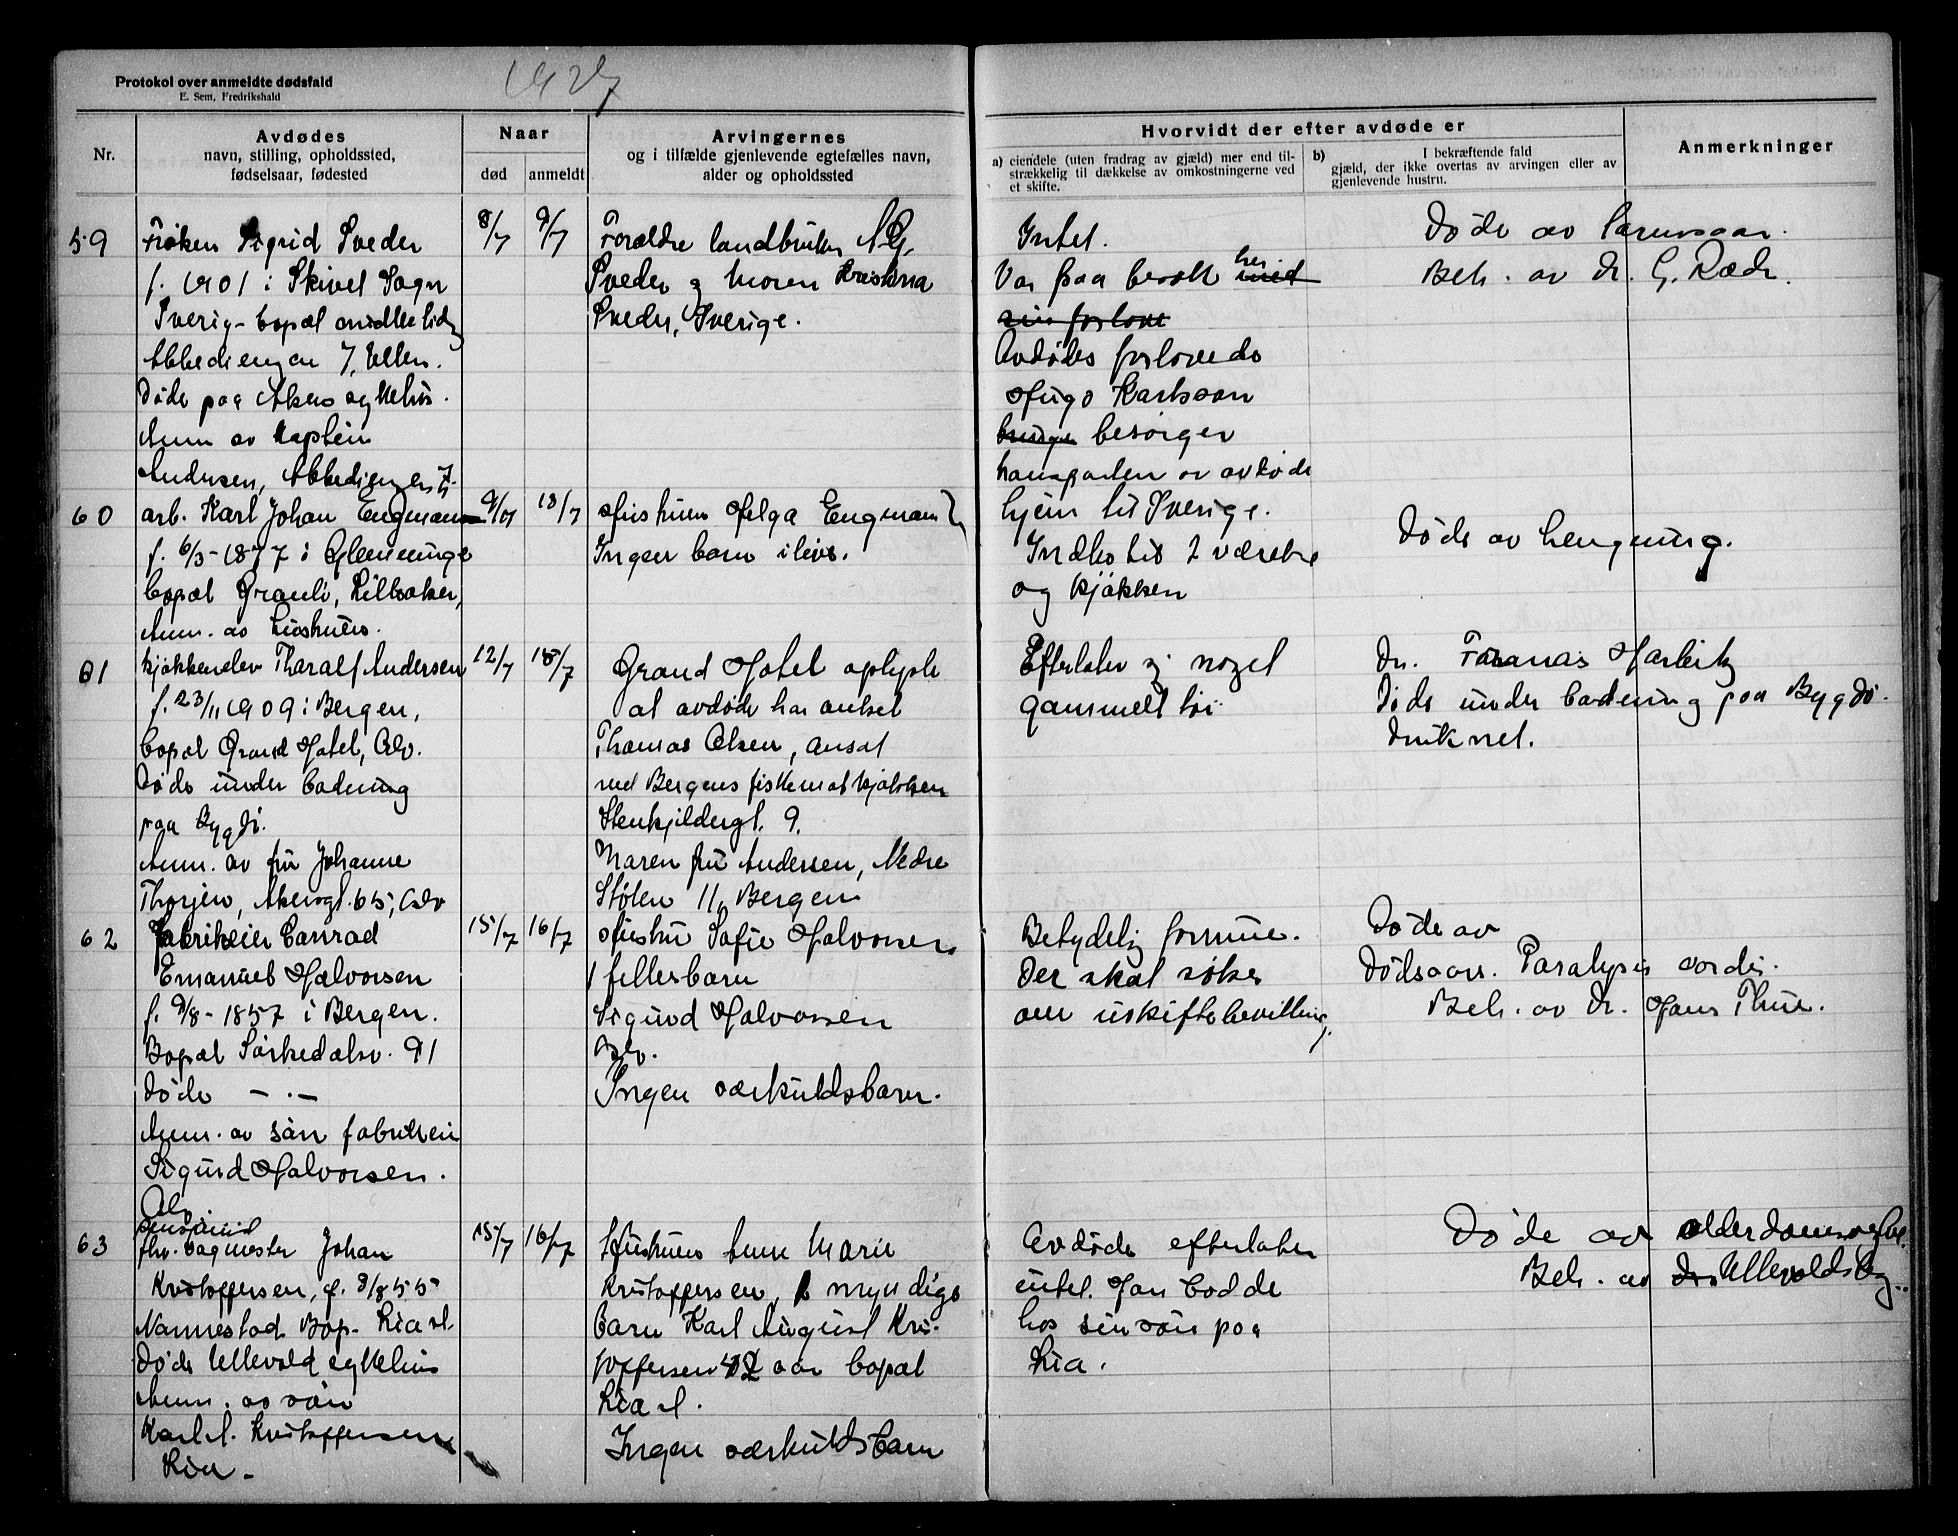 Protokol over anmeldte dødsfald
E. Sem, Fredrikshald
1927
Nr.
Avdødes
navn, stilling, opholdssted,
fødselsaar, fødested
Naar
død
anmeldt
Arvingernes
og i tilfælde gjenlevende egtefælles navn,
alder og opholdssted
Hvorvidt der efter avdøde er
a) eiendele (uten fradrag av gjæld) mer end til-
strækkelig til dækkelse av omkostningerne ved
et skifte.
b) I bekræftende fald
gjæld, der ikke overtas av arvingen eller av
gjenlevende hustru.
Anmerkninger
59
Frøken Sigrid Sveder
f. 1901 i Skivel Sogn
Sverig - bopæl midlertidig
Abbediengen 7, Ullern.
Døde paa Akers sykehus.
Anm av Kaptein
Andersen, Abbediengen 7.
8/7
9/7
Forældre landbruker
Sveder og moren Kristina
Sveder, Sverige.
Intet.
Var paa besøk her med
sin forlove
Avdødes forlovede
Hugo Karlsson
besørger
transporten av avdøde
hjem til Sverige.
Døde av
Beh. av dr. G. Ræder.
60
arb. Karl Johan Engmann
f. 6/3-1877 i Glemminge
bopæl Granli, Lilleaker,
Anm. av hustruen.
9/7
13/7
Hustruen Helga Engmann
Ingen barn ilive.
Indbo til 2 værelse
og kjøkken
Døde av hengning.
61
kjøkkenelev Tharalf Andersen
f. 23/11 1909 i Bergen,
bopæl Grand Hotel, Oslo.
Døde under badning
paa Bygdø.
Anm. av fru Johanne
Thorjen, Akersgt. 65, Oslo
12/7
15/7
Grand Hotel oplyste
at avdøde har onkel
Thomas Olsen, ansat
ved Bergens fiskematkjøkken
Stenkjildergt. 9.
Moren fru Andersen, Nedre
Stølen 11, Bergen
Efterlater sig noget
gammelt tøi
Dr. Harbitz
Døde under badning paa Bygdø.
Druknet.
62
Fabrikeier Conrad
Emanuel Halvorsen
f. 9/8-1857 i Bergen.
Bopæl Sørkedalsv. 91
Døde — . —
Anm. av søn fabrikeier
Sigurd Halvorsen.
Oslo.
15/7
16/7
Hustru Sofie Halvorsen
1 fellesbarn
Sigurd Halvorsen
Oslo.
Ingen særkuldsbarn.
Betydelig formue.
Der skal søkes
om uskiftebevilling.
Døde av
Dødsaars. Paralysis cordis.
Beh. av dr. Hans Thue.
63
pensionist
fhv. sagmester Johan
Kristoffersen, f. 9/8 55
Nannestad Bop. Lia st.
Døde Ullevold sykehus
Anm. av søn
Karl A. Kristoffersen
Lia.
15/7
16/7
Hustruen Anne Marie
Kristoffersen, myndige
barn Karl August Kris-
toffersen 42 aar bopæl
Lia st.
Ingen særkuldsbarn
Avdøde efterlater
intet. Han bodde
hos sin søn paa
Lia.
Døde av alderdomssvak.
Beh. av Ullevolds syg..